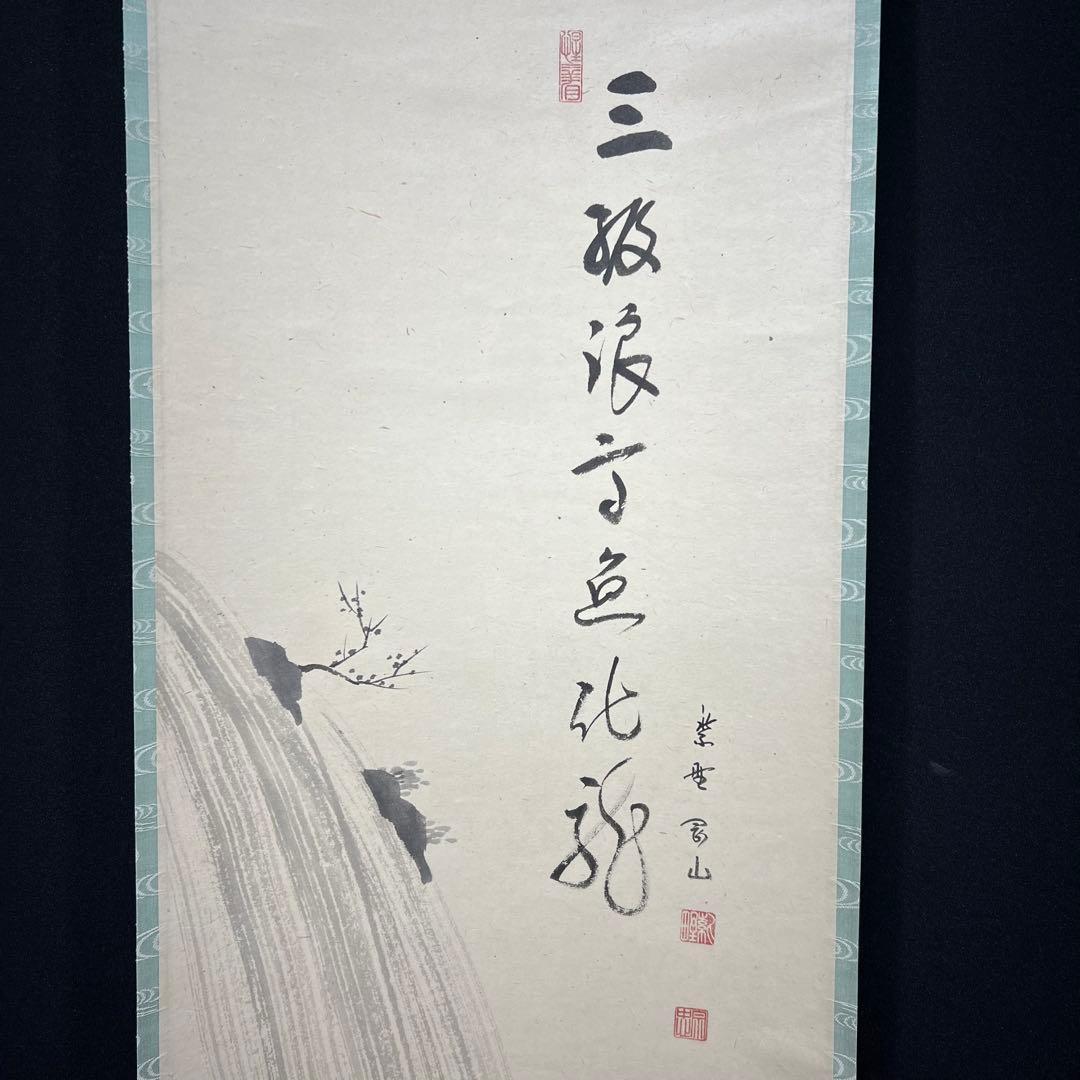 三級浪高魚化龍
紫野